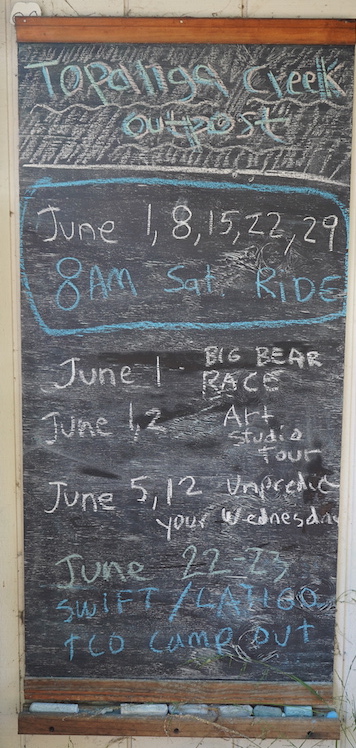 Topanga Creek
outpost
June 1, 8, 15, 22, 29
8AM Sat. RIDE
June 1 BIG BEAR
RACE
June 1,2 Art
Studio
Tour
June 5,12 Unpredic
your Wednesday
June 22-23
SWIFT / LATIGO
TCO CAMP OUT